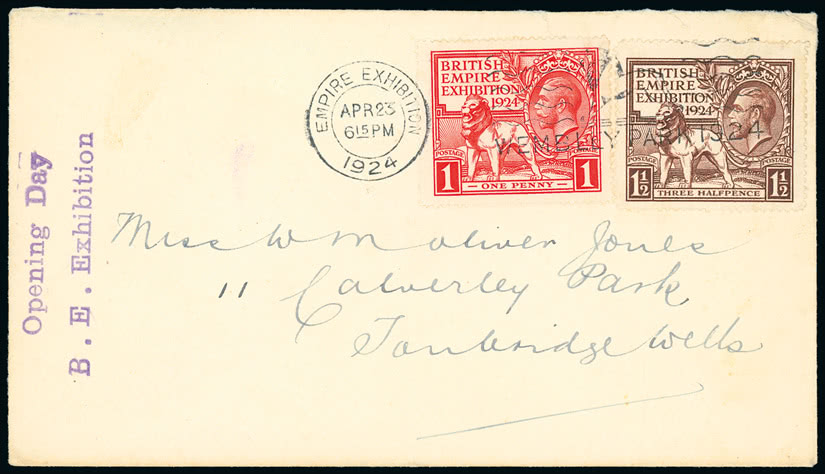 BRITISH
EMPIRE
EXHIBITION
1924
POSTAGE POSTAGE
1 ONE PENNY 1
BRITISH
EMPIRE
EXHIBITION
1924
POSTAGE POSTAGE
1½ THREE HALFPENCE 1½
EMPIRE EXHIBITION
APR 23
6 15 PM
1924
WEMBLEY PARK 1924
Opening Day
B. E. Exhibition
Miss W M Oliver Jones
11 Calverley Park
Tonbridge Wells